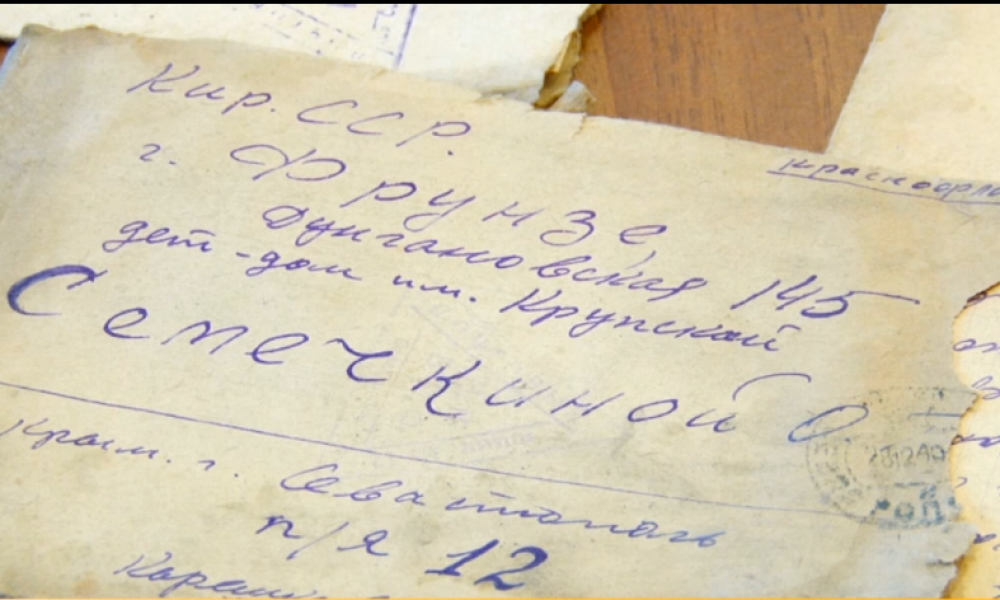 Кир. ССР.
г. Фрунзе
Краснофл
Дунгановская 145
дет-дом им. Крупской
Семечкиной О.
Крым. г. Севастополь
п/я 12
281240